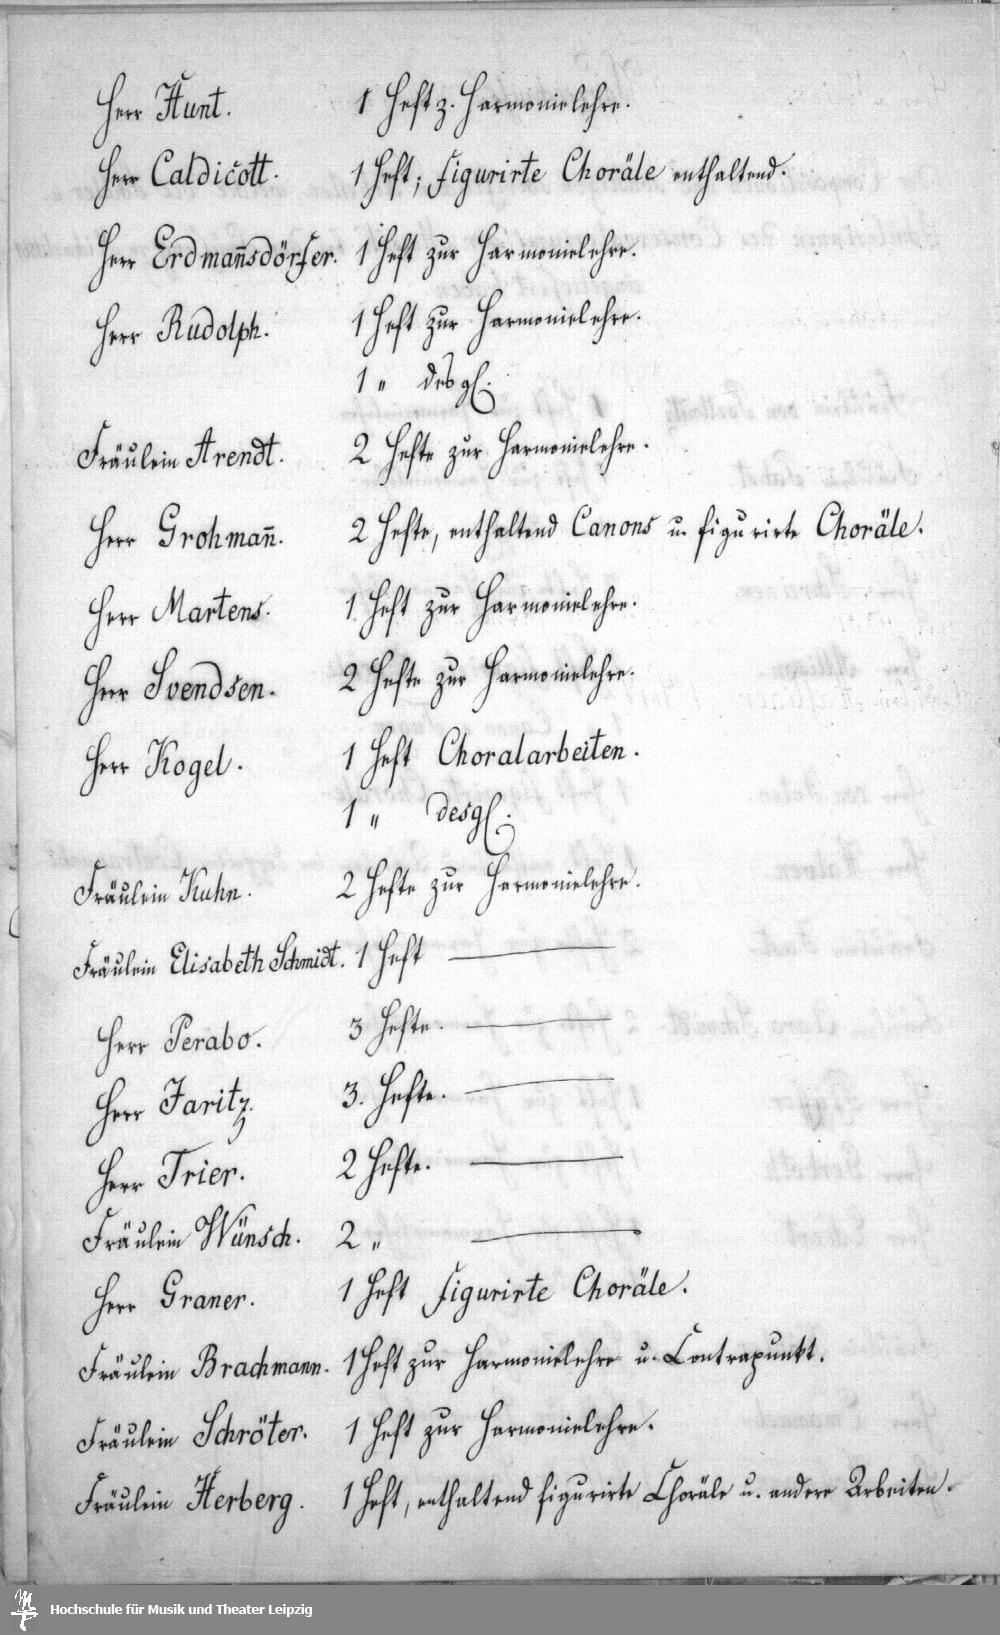 Herr Hunt. 1 Heft z. Harmonielehre.
Herr Caldicott. 1 Heft; figurirte Choräle enthaltend.
Herr Erdman̄sdörfer. 1 Heft zur Harmonielehre.
Herr Rudolph. 1 Heft zur Harmonielehre.
1 " desgl.
Fräulein Arendt. 2 Hefte zur Harmonielehre.
Herr Grohman̄. 2 Hefte, enthaltend Canons u. figurirte Choräle.
Herr Martens. 1 Heft zur Harmonielehre.
Herr Svendsen. 2 Hefte zur Harmonielehre.
Herr Kogel. 1 Heft Choralarbeiten.
1 " desgl.
Fräulein Kuhn. 2 Hefte zur Harmonielehre.
Fräulein Elisabeth Schmidt. 1 Heft —
Herr Perabo. 3 Hefte. —
Herr Jaritz. 3. Hefte. —
Herr Trier. 2 Hefte. —
Fräulein Wünsch. 2 " —
Herr Graner. 1 Heft figurirte Choräle.
Fräulein Brachmann. 1 Heft zur Harmonielehre u. Contrapunkt.
Fräulein Schröter. 1 Heft zur Harmonielehre.
Fräulein Herberg. 1 Heft, enthaltend figurirte Choräle u. andere Arbeiten.
Hochschule für Musik und Theater Leipzig